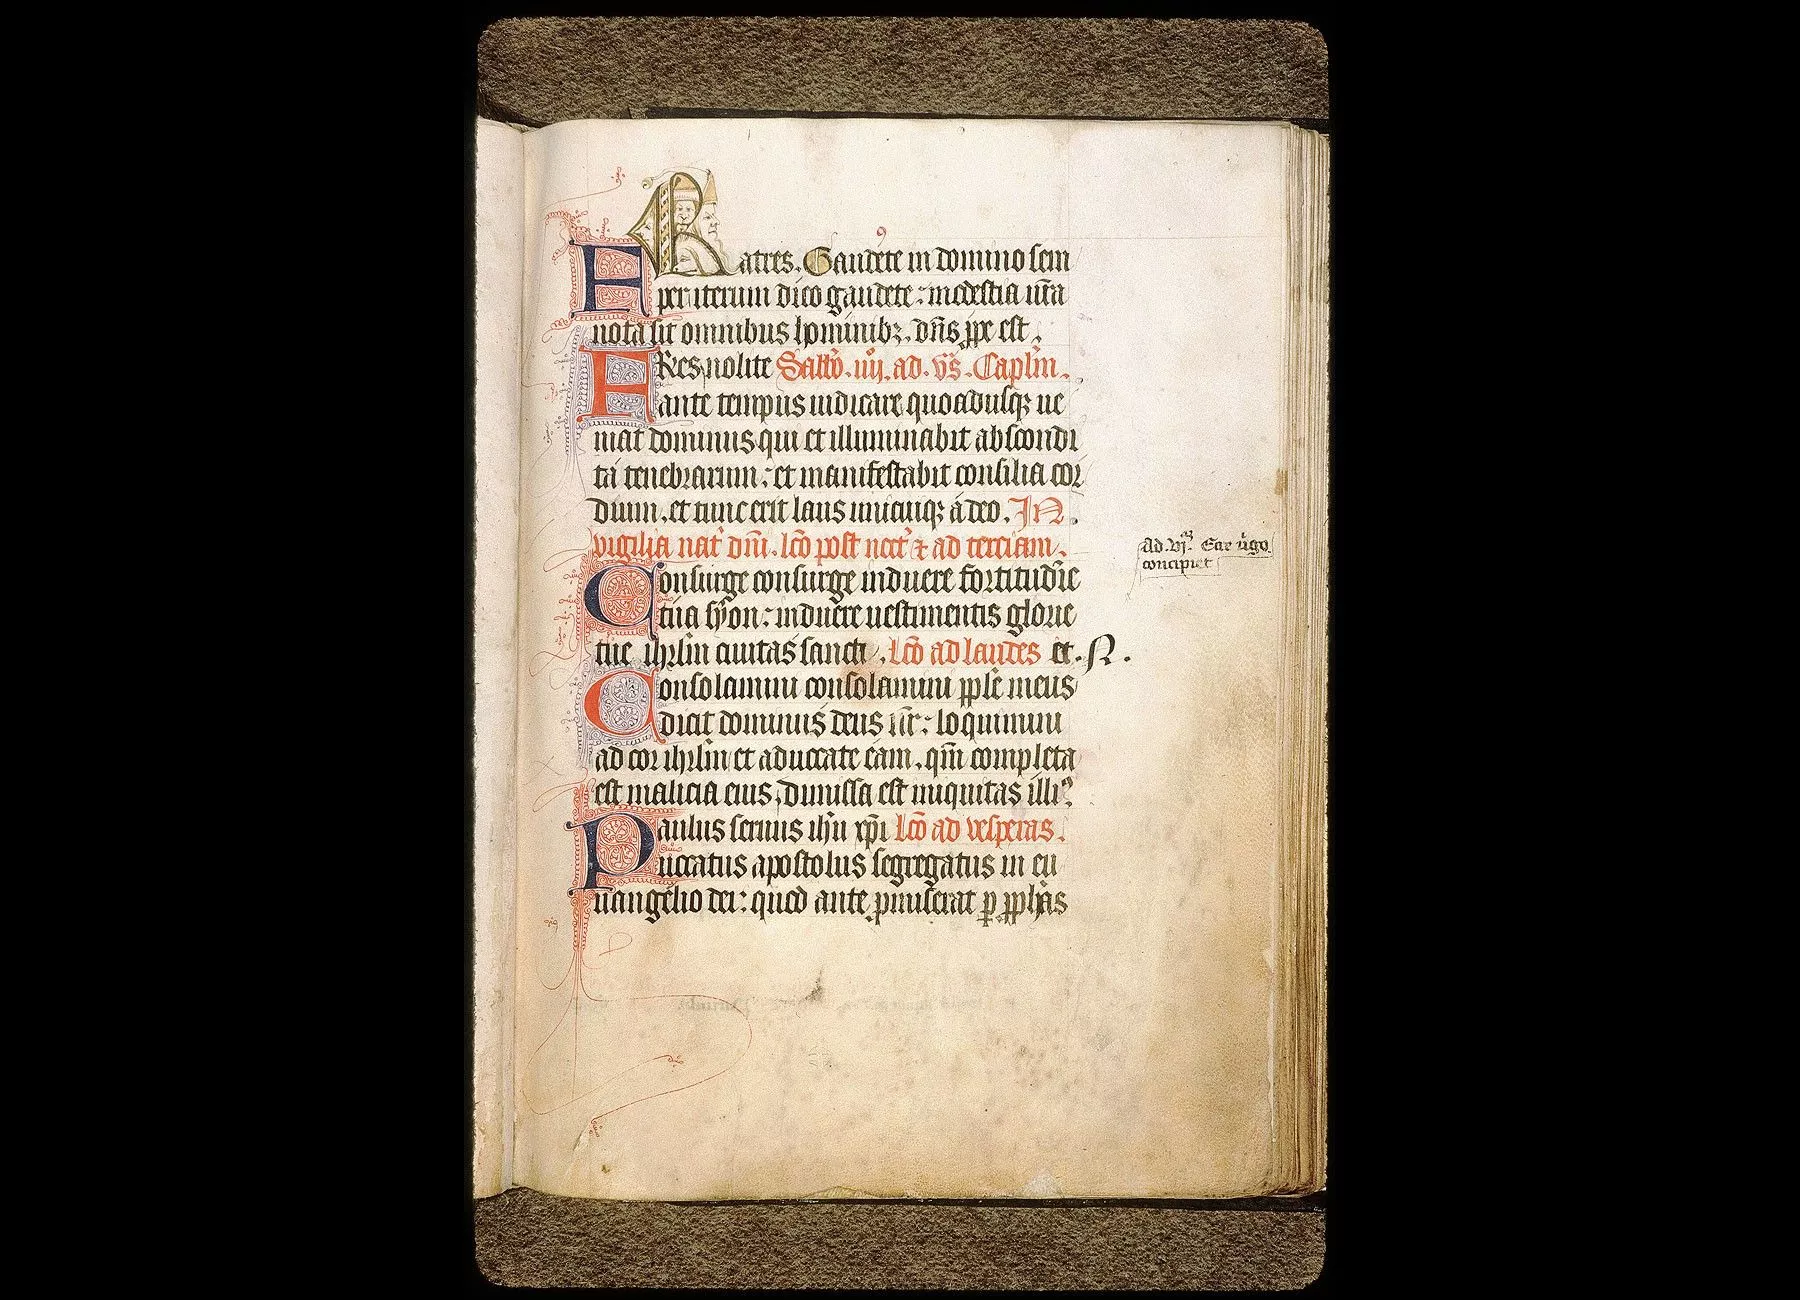 FRatres. Gaudete in domino sem
per iterum dico gaudete : modestia ur̄a
nota sit omnibus hominibꝫ. dn̄s ꝓpe est.
FRes nolite Sabb̄o. iiij. ad. vs̄. Capl̄m.
ante tempus iudicare quoadusqꝫ ue
niat dominus qui et illuminabit abscondi
ta tenebrarum : et manifestabit consilia cor
dium. et tunc erit laus unicuiqꝫ a deo. In
vigilia nat᷒ dn̄i. lc̄o post noct᷒ ⁊ ad terciam.
Consurge consurge induere fortitudīe
tua syon : induere uestimentis glorie
tue ihrl̄m ciuitas sancti. lc̄o ad laudes et. N.
Consolamini consolamini ppl̄e meus
dicit dominus deus nr̄ : loquimini
ad cor ihrl̄m et aduocate eam. qm̄ completa
est malicia eius, dimissa est iniquitas illiꝰ.
Paulus seruus ih̄u xp̄i lc̄o ad vesperas.
uocatus apostolus segregatus in eu
uangelio dei : quod ante ꝓmiserat ꝑ ꝓph̄as
ad. vjᵃᵐ. Ecce uigo
concipiet